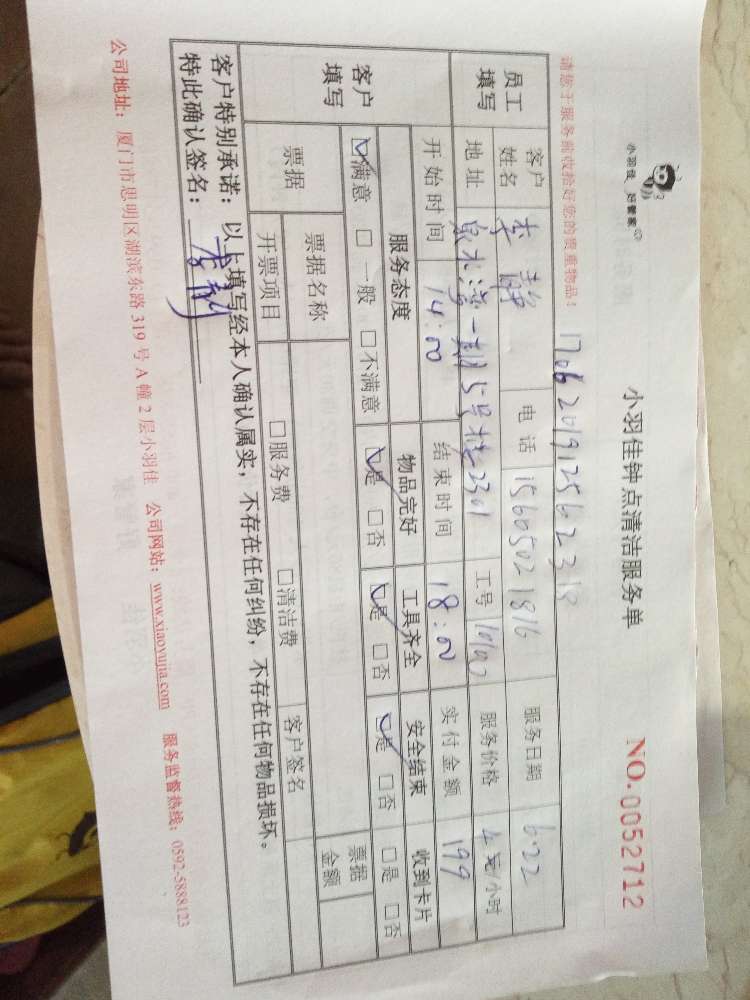 小羽佳 好管家
小羽佳钟点清洁服务单
NO.0052712
请您于服务前收拾好您的贵重物品!
员工填写
客户姓名 李静 电话 15605021816 服务日期 6.22
地址 一期5号楼2301 工号 服务价格 元/小时
开始时间 14:00 结束时间 18:00 实付金额 199
客户填写
服务态度 物品完好 工具齐全 安全结束 收到卡片
☑满意 □一般 □不满意 ☑是 □否 ☑是 □否 ☑是 □否 □是 □否
票据 票据名称 票据金额
开票项目 □服务费 □清洁费 客户签名
客户特别承诺:以上填写经本人确认属实,不存在任何纠纷,不存在任何物品损坏。
特此确认签名:
公司地址:厦门市思明区湖滨东路319号A幢2层小羽佳 公司网站:www.xiaoyujia.com 服务监督热线:0592-5888123